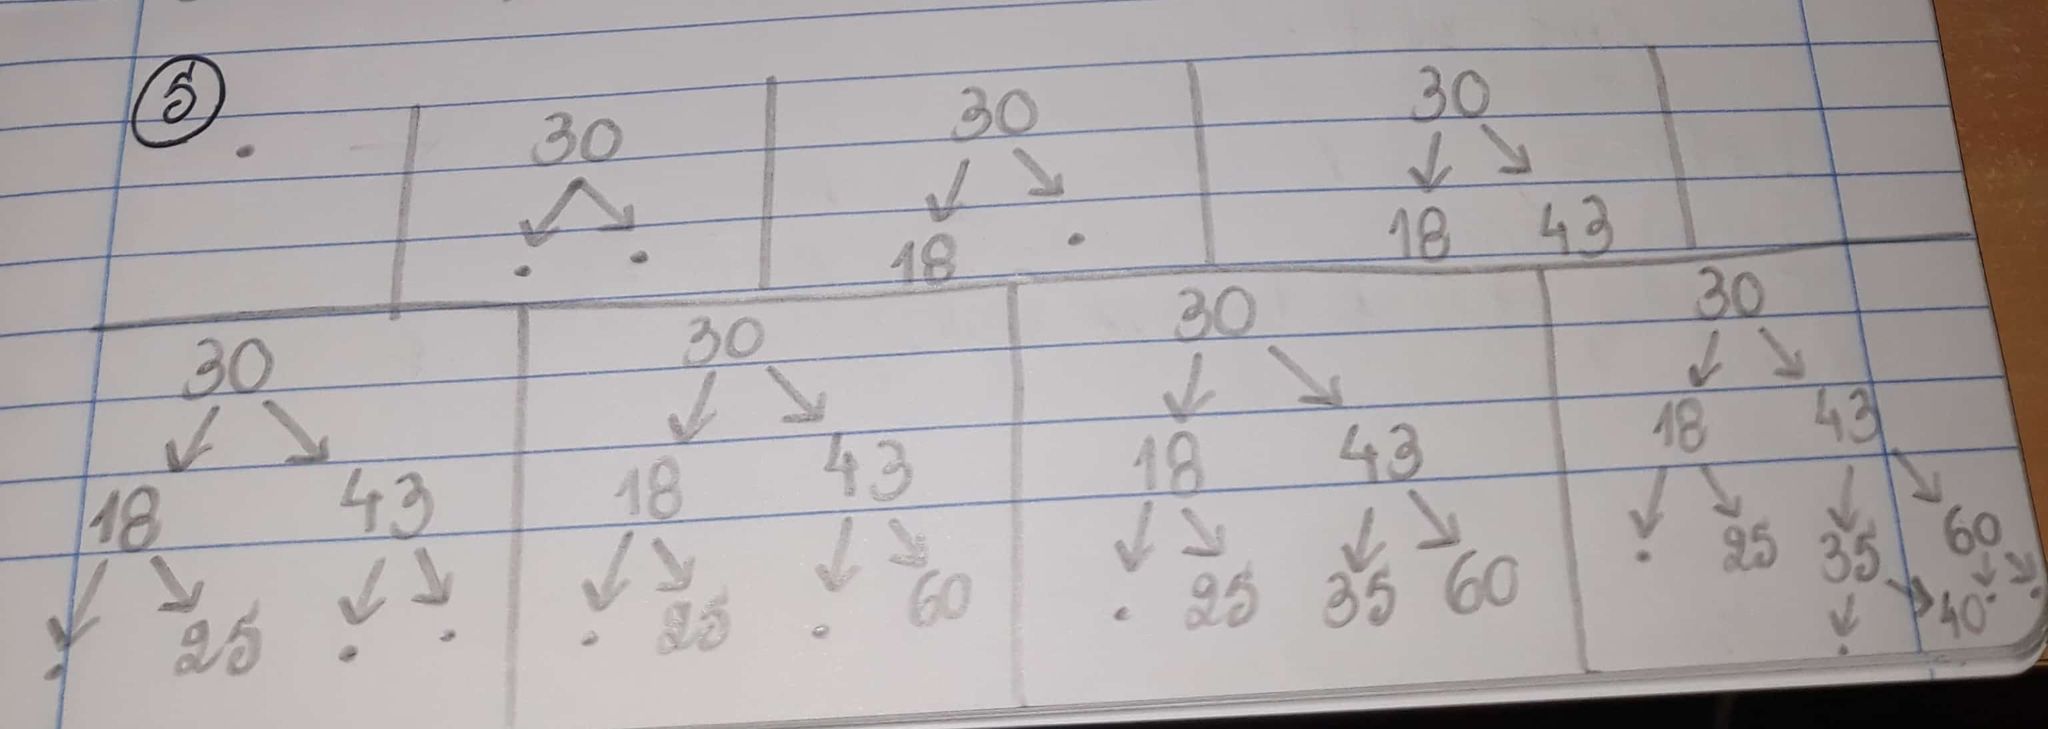 5
30
30
18
30
18 43
30
18 43
25
30
18 43
25 60
30
18 43
25 35 60
30
18 43
25 35 60
40